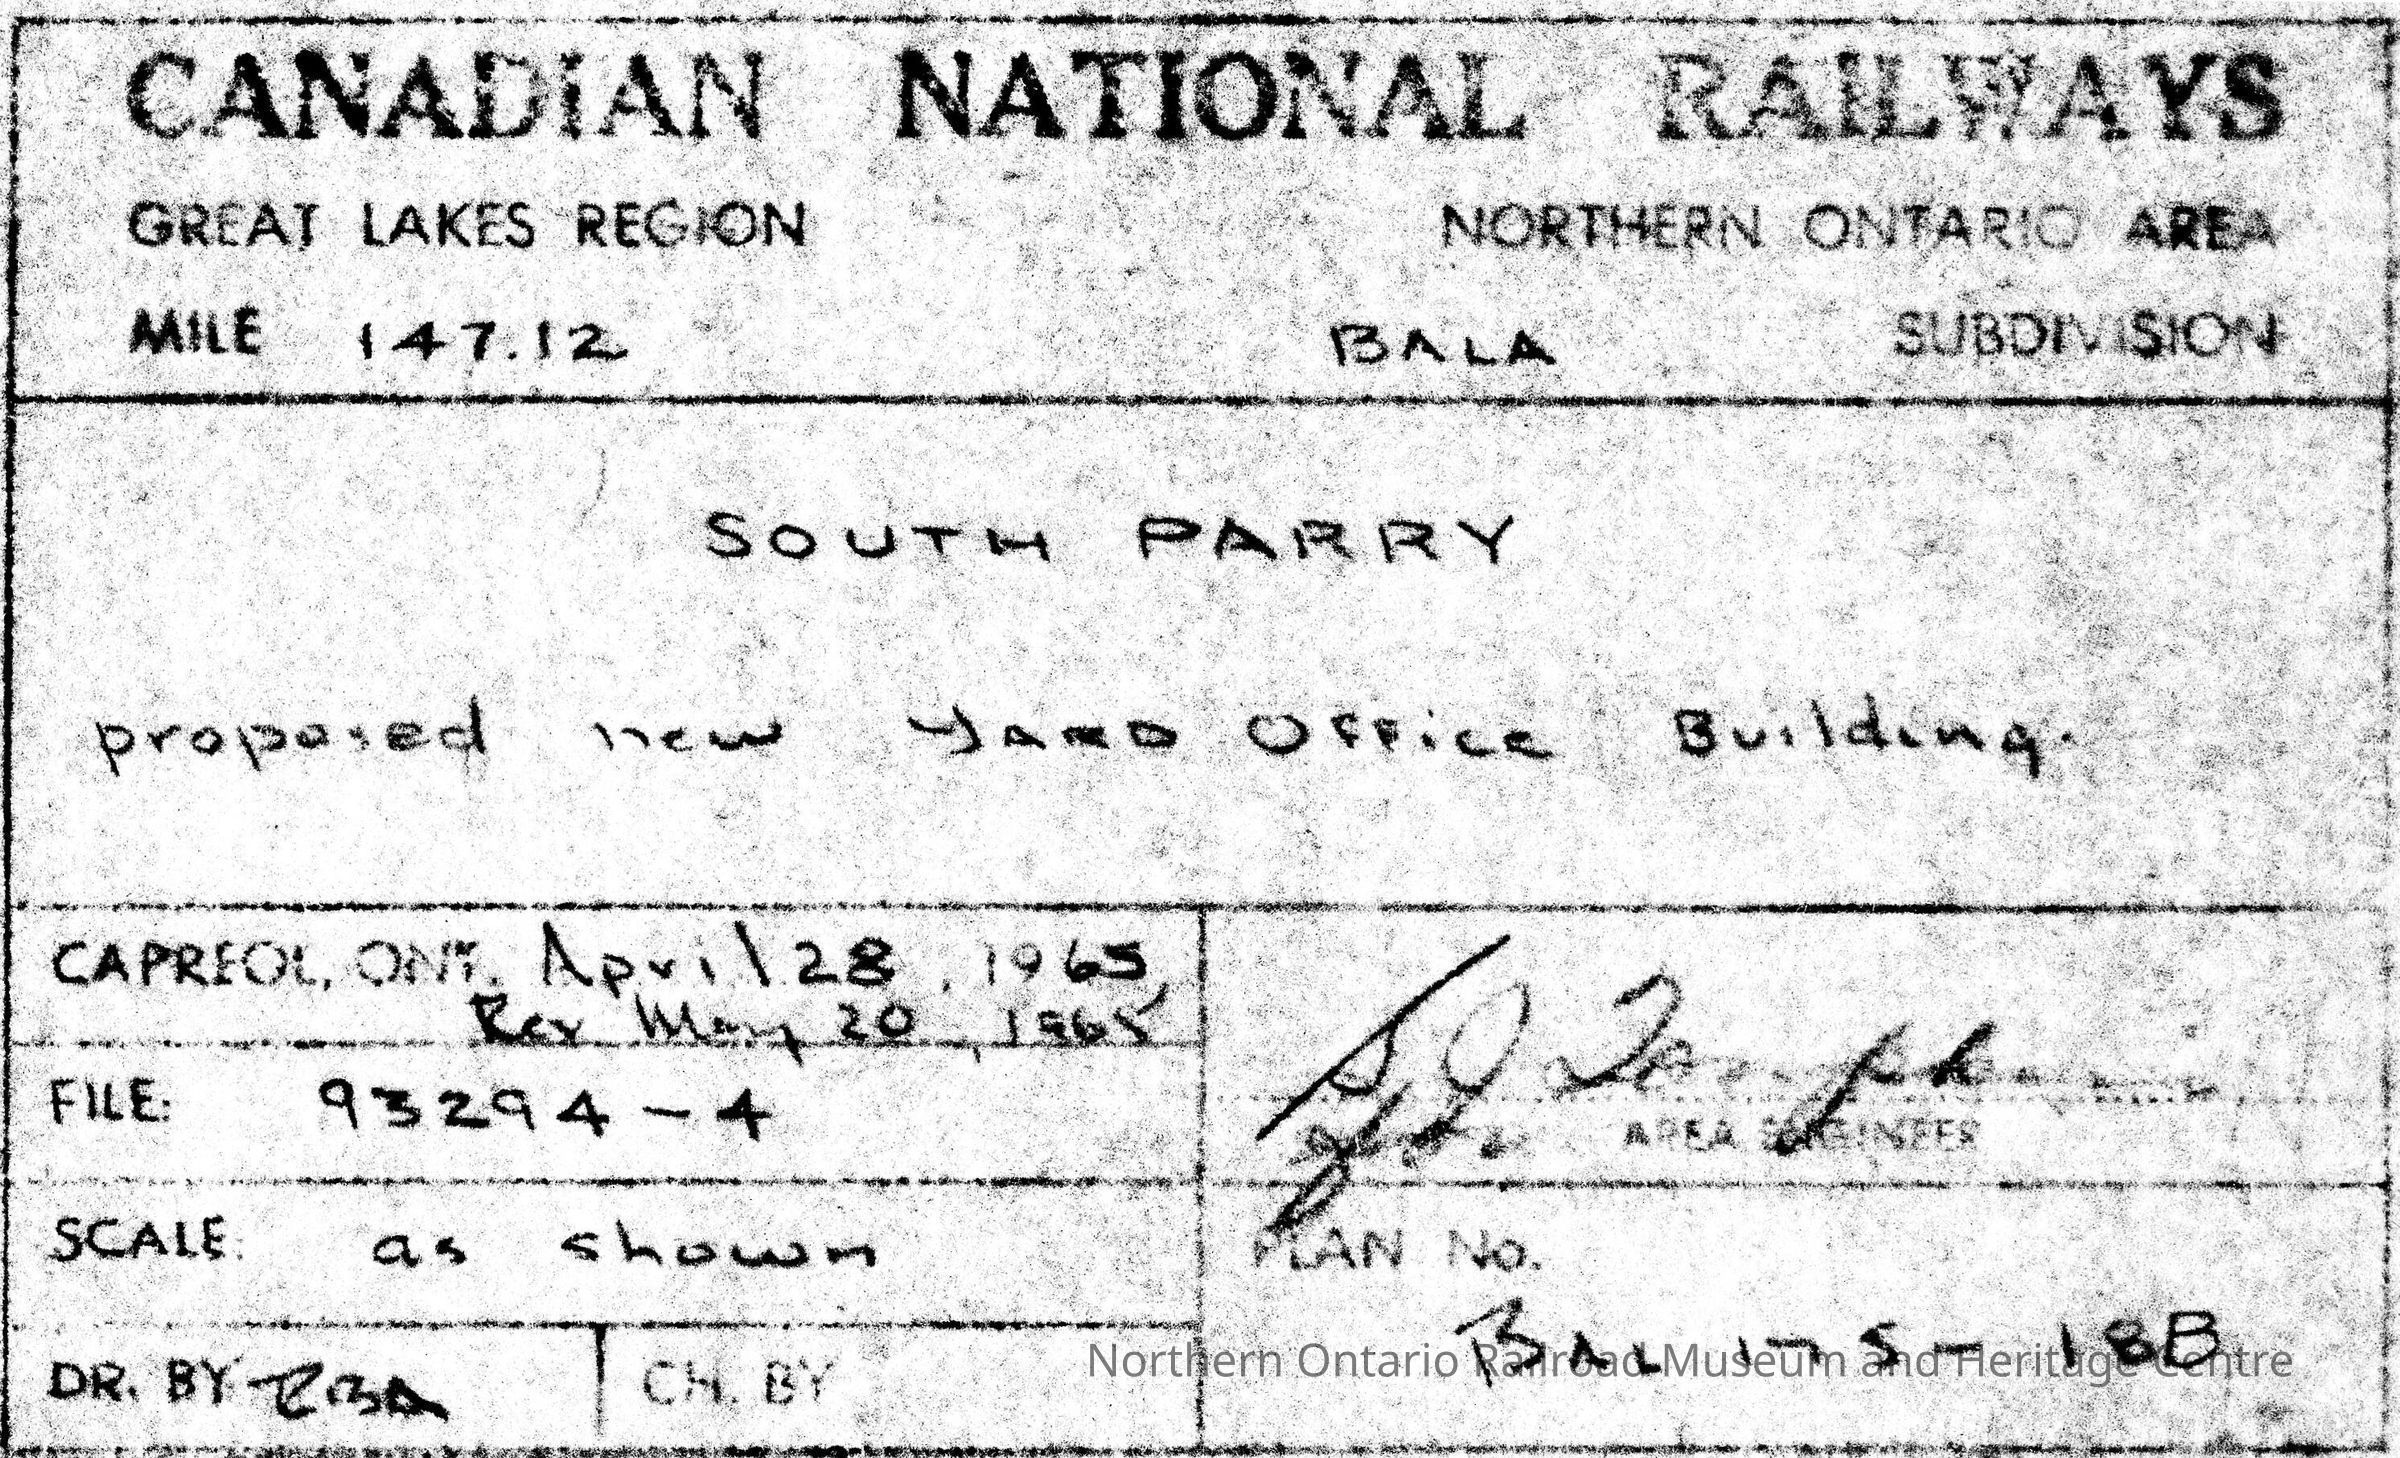 CANADIAN NATIONAL RAILWAYS
GREAT LAKES REGION NORTHERN ONTARIO AREA
MILE 147.12 BALA SUBDIVISION
SOUTH PARRY
proposed new YARD OFFice Building.
CAPREOL, ONT. April 28, 1965
Rev May 20, 1965
FILE: 93294-4
AREA ENGINEER
SCALE: as shown
PLAN No.
DR. BY CH. BY
Northern Ontario Railroad Museum and Heritage Centre